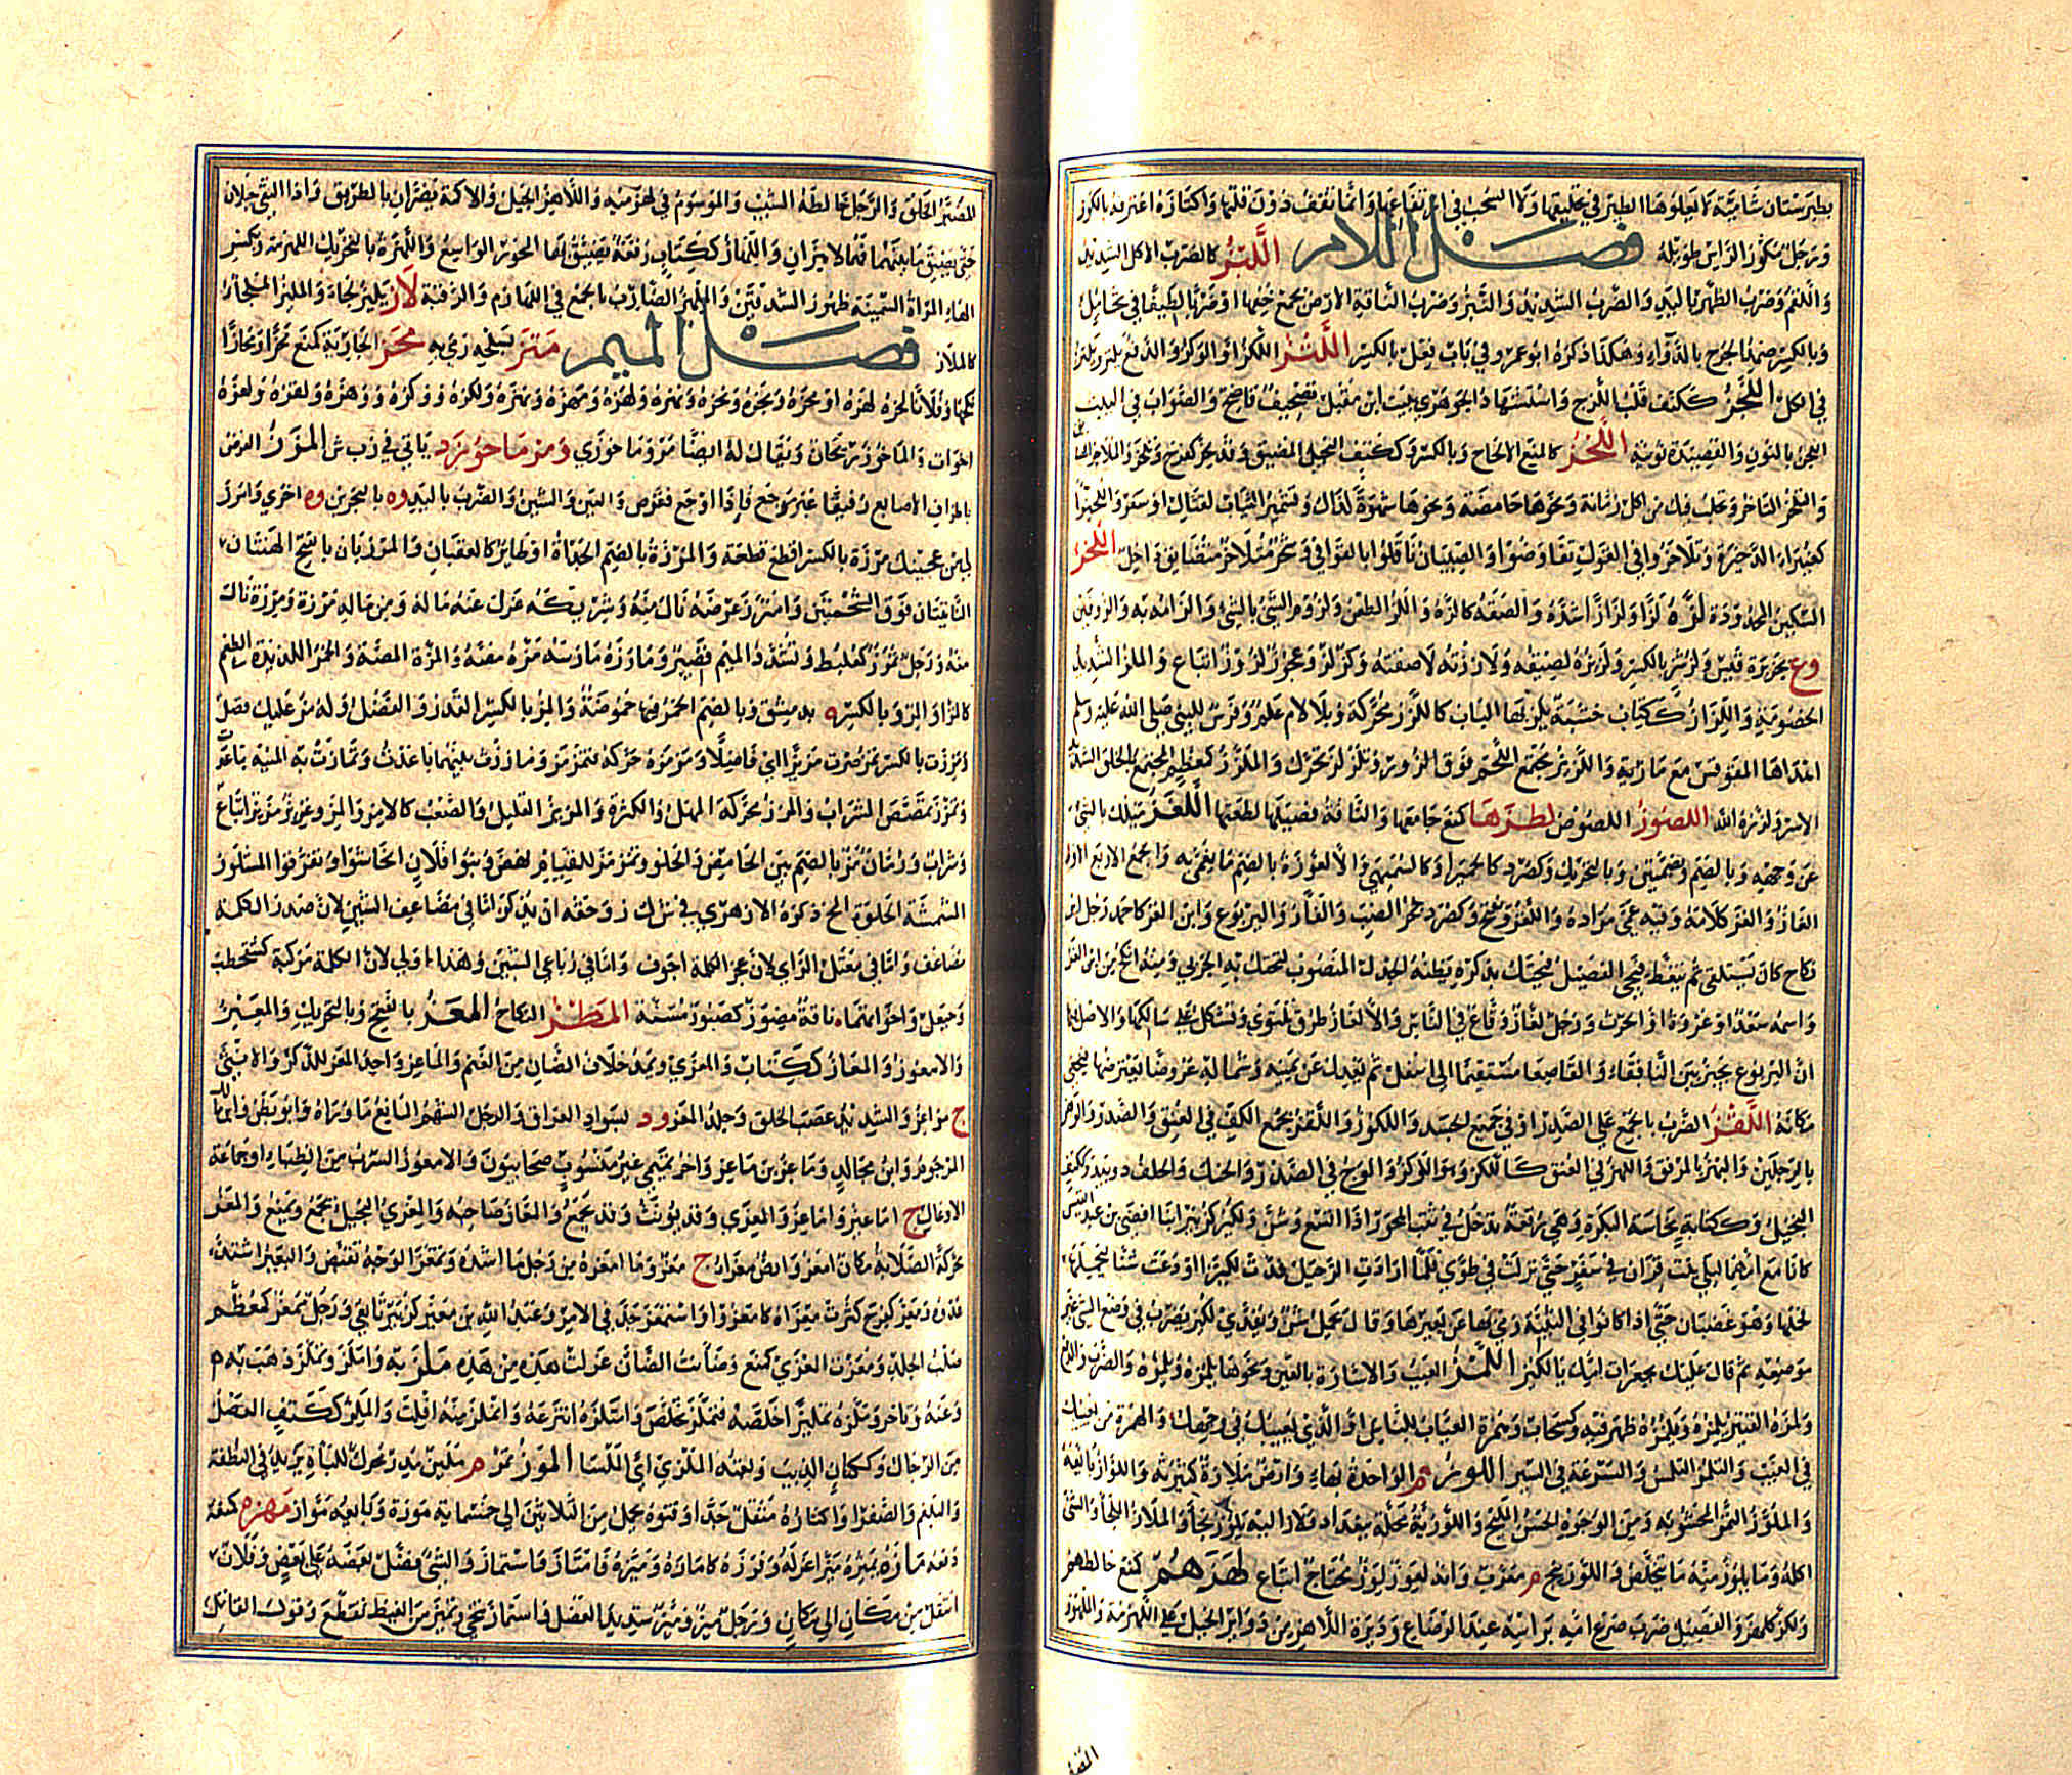 بطبرستان شامخة لا يعلوها الطير في تحليقها ولا السحب في ارتفاعها وانما تقف دون قلتها واكتازه اغترفه بالكوز
ورجل مكوز الراس طويله فصل اللام اللتز كالضرب الاكل الشديد
واللقم وضرب الظهر باليد والضرب الشديد والنبز وضرب الناقة الارض بجمع خفها او ضربا لطيفا في تحامل
وبالكسر ضماد الجرح بالدواء وهكذا ذكره ابو عمرو في باب فعل بالكسر اللتز اللكز او الوكز والدفع يلتز ويلتز
في الكل اللجز ككتف قلب اللزج واستشهاد الجوهري ببيت ابن مقبل تصحيف فاضح والصواب في البيت
اللجن بالنون والقصيدة نونية اللحز كالمنع الالحاح وبالكسر وككتف البخيل الضيق وقد لحز كفرح وتلحز والملاحز المضايق
والتلحز التاخر وتحلب فيك من اكل رمانة ونحوها حامضة ونحوها شهوة لذلك وتشمير الثياب لقتال او سفر واللحيزا
كغبيراء الذخيرة وتلاحزوا في القول تعاوضوا والصبيان ناقلوا بالقوافي وشجر متلاحز متضايق اللخز
السكين المحدودة لزه لزا ولززا شده والصقه كالزه واللز الطعن ولزوم الشيء بالشيء والزامه به والزرفين
وع بجزيرة قيس ولز شر بالكسر ولزيزه لصيقه ولاززته لاصقته وكز لز وعجوز لزوز اتباع والملز الشديد
الخصومة واللزاز ككتاب خشبة يلز بها الباب كاللزز محركة وبلا لام علم وفرس للنبي صلى الله عليه وسلم
اهداها المقوقس مع مارية واللزيز مجتمع اللحم فوق الزور وتلزلز تحرك والملزز كمعظم المجتمع الخلق الشديد
الاسر ولززه الله اللصوز اللصوص لطزها كمنع جامعها والناقة فصيلها لطعها اللغز ميلك بالشيء
عن وجهه وبالضم وبضمتين وبالتحريك وكصرد كالحميراء وكالسميهي والالغوزة بالضم ما يعمى به والجمع الاربع الاول
الغاز والغز كلامه وفيه عمى مراده واللغز ويفتح وكصرد جحر الضب والفأر واليربوع وابن الغز كاحمد رجل اير
نكاح كان يستلقي ثم ينعظ فيجيء الفصيل فيحتك بذكره يظنه الجذل المنصوب لتحتك به الجربى ومنه انكح من ابن الغز
واسمه سعد او عروة او الحرث ورجل لغاز وقاع في الناس والالغاز طرق تلتوي وتشكل على سالكها والاصل فيها
ان اليربوع يحفر بين النافقاء والقاصعا مستقيما الى اسفل ثم يعدل عن يمينه وشماله عروضا يعترضها فيخفى
مكانه اللقز الضرب بالجمع على الصدر او في جميع الجسد واللكز واللقز بجمع الكف في العنق والصدر والوهز
بالرجلين والبهز بالمرفق واللهز في العنق كاللكز وهو والوكز والوجء في الصدر والحنك وككتف
البخيل وككتابة نحاسة البكرة وهي رقعة تدخل في ثقب المحور اذا اتسع وشن ولكيز كزبير ابنا افصى بن عبد القيس
كانا مع امهما ليلى بنت قران في سفر حتى نزلت في طوى فلما ارادت الرحيل فدت لكيزا ودعت شنا ليحملها
فحملها وهو غضبان حتى اذا كانوا في الثنية رمى بها عن بعيرها وقال يحمل شن ويفدى لكيز يضرب في وضع الشيء غير
موضعه ثم قال عليك بجعرات امك يا لكيز اللمز العيب والاشارة بالعين ونحوها يلمزه ويلمزه والضرب والدفع
ولمزه القتير يلمزه ويلمزه ظهر فيه وكسحاب وهمزة العياب للناس او الذي يعيبك في وجهك والهمزة من يعيبك
في الغيب والتلمز التلمس والسرعة في السير اللوز م الواحدة بهاء وارض ملازة كثيرته واللواز بائعه
والملوز التمر المحشو به ومن الوجوه الحسن المليح واللوزية محلة ببغداد ولاز اليه يلوز لجأ والملاز الملجأ والشيء
اكله وما يلوز منه ما يتخلص واللوزينج م معرب وانه لعوز لوز محتاج اتباع لهزهم كمنع خالطهم
ولكز كلهز والفصيل ضرب ضرع امه براسه عند الرضاع ودائرة اللاهز من دوائر الخيل على اللهزمة والملهوز
المضبر الخلق والرجل خالطه الشيب والموسوم في لهزمتيه واللاهز الجبل والاكمة يضران بالطريق واذا التقى جبلان
حتى يضيق ما بينهما فهما لاهزان واللهاز ككتاب رقعة يضيق بها الحوض الواسع واللهزة بالتحريك اللهزمة وبكسر
الهاء المراة السمينة ظهور الثديين والملهز الضارب بالجمع في اللهازم والرقبة لاز يليز لجاء والمليز الملجأ
كالملاز فصل الميم متز بسلحه رمى به محز الجارية كمنع محزا ومحازا
نكحها وفلانا لهزه او محزه وبحزه ونحزه ونهزه ولهزه ومهزه وبهزه ولكزه ووكزه ووهزه ولقزه ولعزه
اخوات والماحوز ريحان ويقال له ايضا مرو ماحوزي ومرو ماحوز يأتي في المرز القرص
باطراف الاصابع رفيقا غير موجع فاذا اوجع فقرص والعيب والشين والضرب باليد وه بالبحرين وه اخرى وامرز
لي من عجينك مرزة بالكسر اقطع قطعة والمرزة بالضم الحدأة او طائر كالعقبان والمرزتان بالفتح الهنتان
الناتئتان فوق الشحمتين وامترز عرضه نال منه وشريكه عزل عنه ماله ومن ماله مرزة ومرزة نال
منه ورجل تمرز كعلبط وتشدد الميم قصير ومارزه مارسه مزه مصه والمزة المصة والخمر اللذيذة الطعم
كالمزاء والمز وبالكسر ه بدمشق وبالضم الخمر فيها حموضة والمز بالكسر القدر والفضل وله مز عليك فضل
ومززت بالكسر تمز صرت مزيزا اي فاضلا ومزمزه حركه فتمزمز وما ززت بينهما باعدت وتمازت به المنية تباعد
وتمزز تمصص الشراب والمزز محركة المهل والكثرة والمزيز القليل والصعب كالامز والمز وعزيز مزيز اتباع
وشراب ورمان مز بالضم بين الحامض والحلو وتمزمز للقيام نهض وبنو فلان انخاشوا وتفرقوا المشلوز
المشمشة الحلوة المخ ذكره الازهري في ش ل ز وحقه ان يذكر اما في مضاعف الشين لان صدر الكلمة
مضاعف واما في معتل الزاي لان عجز الكلمة اجوف واما في رباعي الشين وهذا اولى لان الكلمة مركبة كشقحطب
وحيعل واخواتهما ناقة مضوز كصبور مسنة المطز النكاح المعز بالفتح وبالتحريك والمعيز
والامعوز والمعاز ككتاب والمعزى ويمد خلاف الضان من الغنم والماعز واحد المعز للذكر والانثى
ج مواعز والشديد عصب الخلق وجلد المعز ود بسواد العراق والرجل الشهم المانع ما وراه وابو بطن وابن مالك
المرجوم وابن مجالد وماعز بن ماعز واخر تميمي غير منسوب صحابيون والامعوز السرب من الظباء او جماعة
الاوعال ج اماعيز واماعز والمعزى وقد يؤنث وقد يمنع والمعاز صاحبه والمعزي البخيل يجمع ويمنع والمعز
محركة الصلابة مكان امعز وارض معزاء ج معز وما امعزه من رجل ما اشده وتمعز الوجه تقبض والبعير اشتد
عدوه ومعز كفرح كثرت معزاه كامعزوا واستمعز جد في الامر وعبد الله بن معيز كزبير تابعي ورجل ممعز كمعظم
صلب الجلد ومعزت المعزى كمنع وضأنت الضأن عزلت هذه من هذه ملز به وامّلز وتملز ذهب به م
وعنه وتاخر وملزه تمليزا خلصه فتملز تخلص وامتلزه انتزعه وانملز منه افلت والملز ككتف العضل
من الرجال وككتان الذيب ولعبة الملزى اي الملسا الموز ثمر م ملين مدر محرك للباءة يزيد في النطفة
والبلغم والصفرا واكثاره مثقل جدا وقنوه يحمل من الثلاثين الى خمسماية موزة وبائعه مواز مهزه كمنعه
دفعه مازه يميزه ميزا عزله وفرزه كامازه وميزه فامتاز وانماز وتميز واستماز والشيء فضل بعضه على بعض وفلان
انتقل من مكان الى مكان ورجل ميز وميّز شديد العضل واستماز تنحى وتميز من الغيظ تقطع وقول القائل